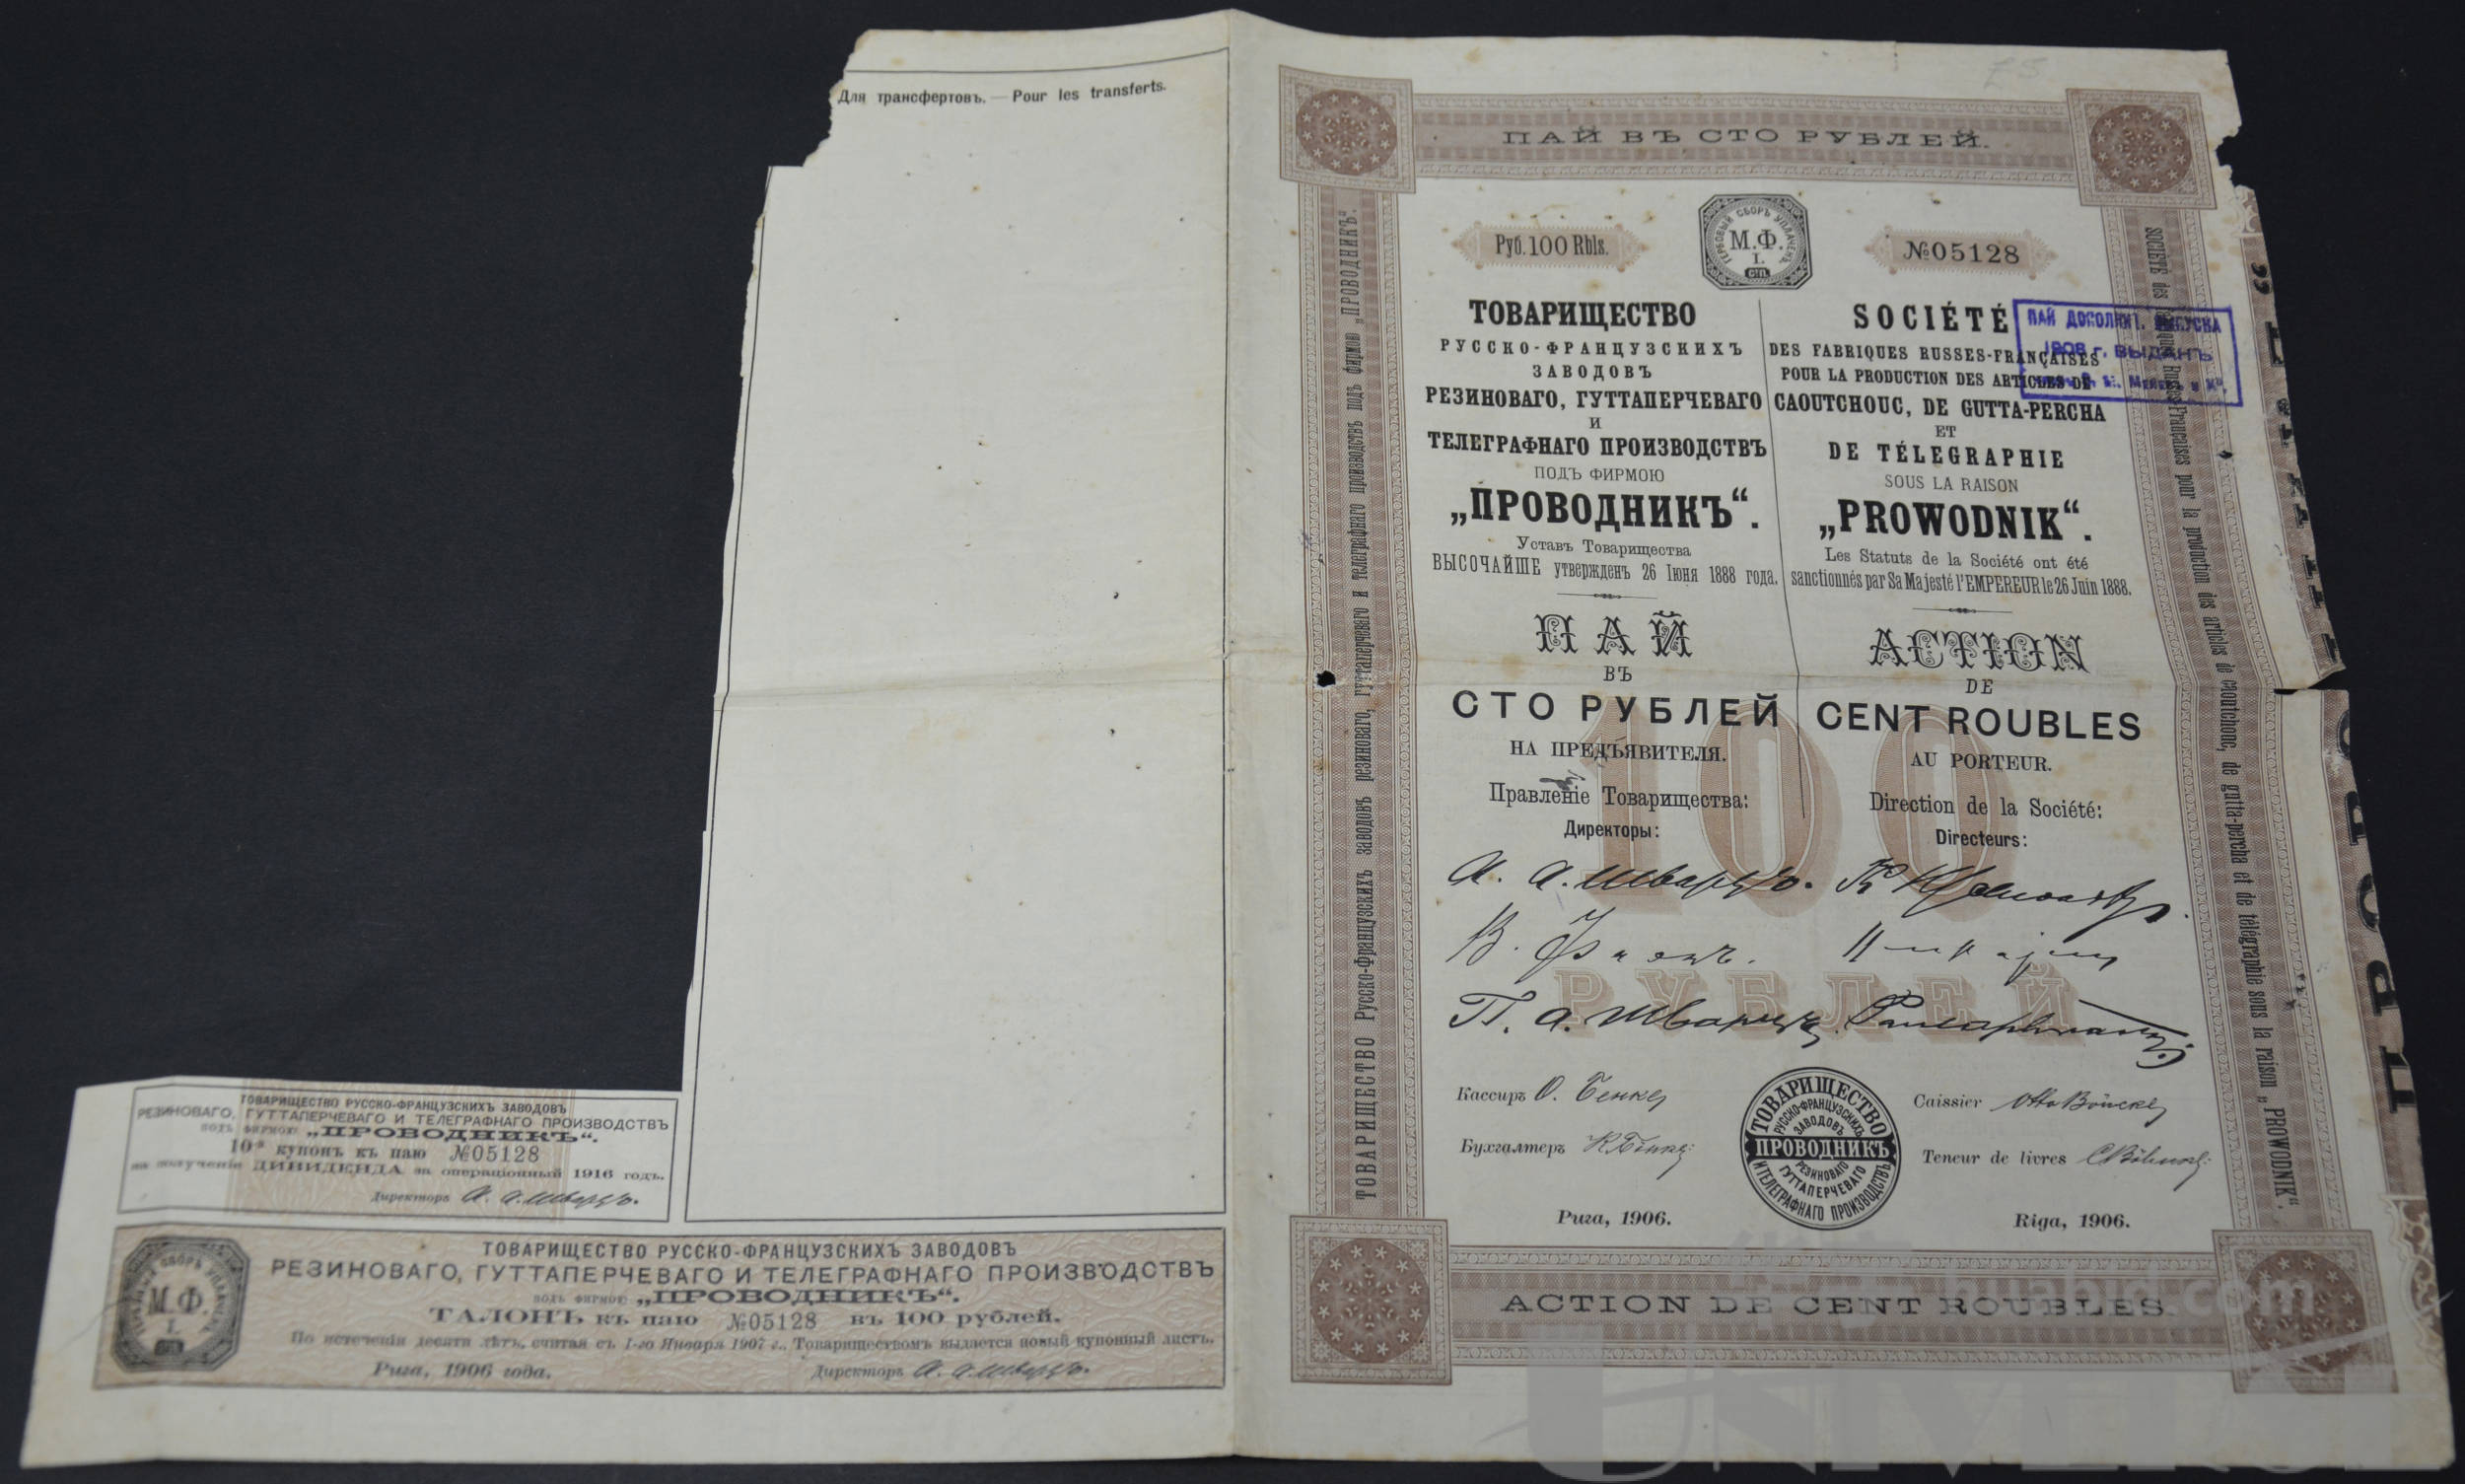 Для трансфертовъ. — Pour les transferts.
ТОВАРИЩЕСТВО РУССКО-ФРАНЦУЗСКИХЪ ЗАВОДОВЪ
РЕЗИНОВАГО, ГУТТАПЕРЧЕВАГО И ТЕЛЕГРАФНАГО ПРОИЗВОДСТВЪ
подъ фирмою „ПРОВОДНИКЪ“.
10-й купонъ къ паю №05128
на полученіе ДИВИДЕНДА за операціонный 1916 годъ.
Директоръ А. А. Шварцъ.
ТОВАРИЩЕСТВО РУССКО-ФРАНЦУЗСКИХЪ ЗАВОДОВЪ
РЕЗИНОВАГО, ГУТТАПЕРЧЕВАГО И ТЕЛЕГРАФНАГО ПРОИЗВОДСТВЪ
подъ фирмою „ПРОВОДНИКЪ“.
ТАЛОНЪ къ паю №05128 въ 100 рублей.
По истеченіи десяти лѣтъ, считая съ 1-го Января 1907 г., Товариществомъ выдается новый купонный листъ.
Рига, 1906 года.
Директоръ А. А. Шварцъ.
ГЕРБОВЫЙ СБОРЪ УПЛАЧЕНЪ
М.Ф.
1.
СП.
ПАЙ ВЪ СТО РУБЛЕЙ.
Руб. 100 Rbls.
ГЕРБОВЫЙ СБОРЪ УПЛАЧЕНЪ
М.Ф.
1.
СП.
№05128
ТОВАРИЩЕСТВО
РУССКО-ФРАНЦУЗСКИХЪ
ЗАВОДОВЪ
РЕЗИНОВАГО, ГУТТАПЕРЧЕВАГО
И
ТЕЛЕГРАФНАГО ПРОИЗВОДСТВЪ
ПОДЪ ФИРМОЮ
„ПРОВОДНИКЪ“.
Уставъ Товарищества
ВЫСОЧАЙШЕ утвержденъ 26 Іюня 1888 года.
ПАЙ
ВЪ
СТО РУБЛЕЙ
НА ПРЕДЪЯВИТЕЛЯ.
Правленіе Товарищества:
Директоры:
SOCIÉTÉ
DES FABRIQUES RUSSES-FRANÇAISES
POUR LA PRODUCTION DES ARTICLES DE
CAOUTCHOUC, DE GUTTA-PERCHA
ET
DE TÉLEGRAPHIE
SOUS LA RAISON
„PROWODNIK“.
Les Statuts de la Société ont été
sanctionnés par Sa Majesté l'EMPEREUR le 26 Juin 1888.
ACTION
DE
CENT ROUBLES
AU PORTEUR.
Direction de la Société:
Directeurs:
ПАЙ ДОПОЛНИТ. ВЫПУСКА
1908 г. ВЫДАНЪ
100
РУБЛЕЙ
А. А. Шварцъ.
П. А. Шварцъ.
Кассиръ О. Бенке
Caissier Otto Böncke
Бухгалтеръ
Teneur de livres
ТОВАРИЩЕСТВО
РУССКО-ФРАНЦУЗСКИХЪ
ЗАВОДОВЪ
ПРОВОДНИКЪ
РЕЗИНОВАГО
ГУТТАПЕРЧЕВАГО
И ТЕЛЕГРАФНАГО ПРОИЗВОДСТВЪ
Рига, 1906.
Riga, 1906.
ACTION DE CENT ROUBLES.
ТОВАРИЩЕСТВО Русско-Французскихъ заводовъ резиноваго, гуттаперчеваго и телеграфнаго производствъ подъ фирмою „ПРОВОДНИКЪ“.
SOCIÉTÉ des Fabriques Russes-Françaises pour la production des articles de caoutchouc, de gutta-percha et de télégraphie sous la raison „PROWODNIK“.
huabid.com